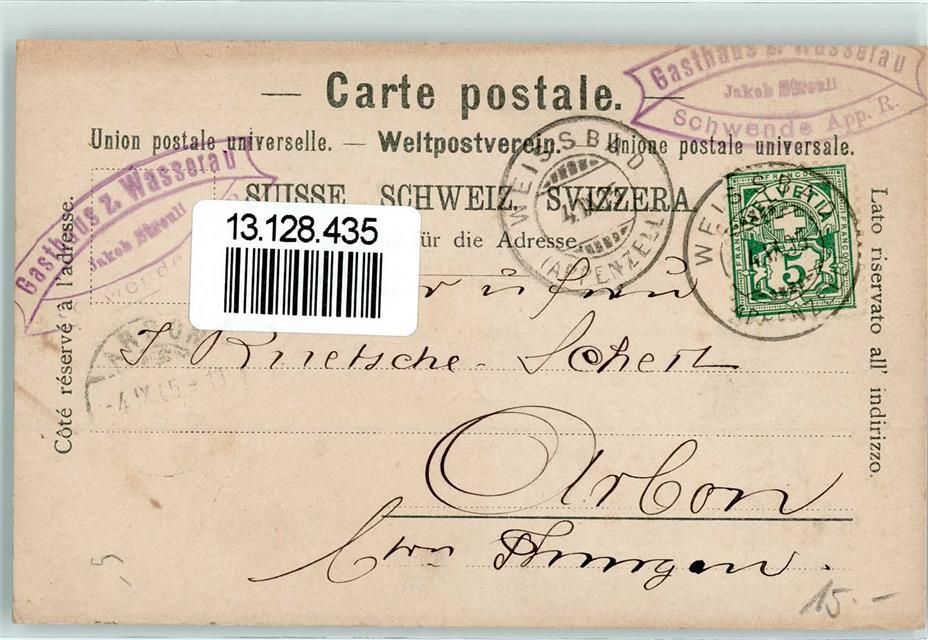 — Carte postale. —
Union postale universelle. — Weltpostverein. — Unione postale universale.
SUISSE. SCHWEIZ. SVIZZERA.
für die Adresse.
Côté réservé à l'adresse.
Lato riservato all' indirizzo.
13.128.435
Gasthaus z. Wasserau
Jakob Streuli
Schwende App. R.
Gasthaus z. Wasserau
Jakob Streuli
WEISSBAD
(APPENZELL)
HELVETIA
FRANCO
5
ARBON
-4.IX.05-
u Frau
J. Ruetsche-Scherb
Arbon
Ctn Thurgau.
15.-